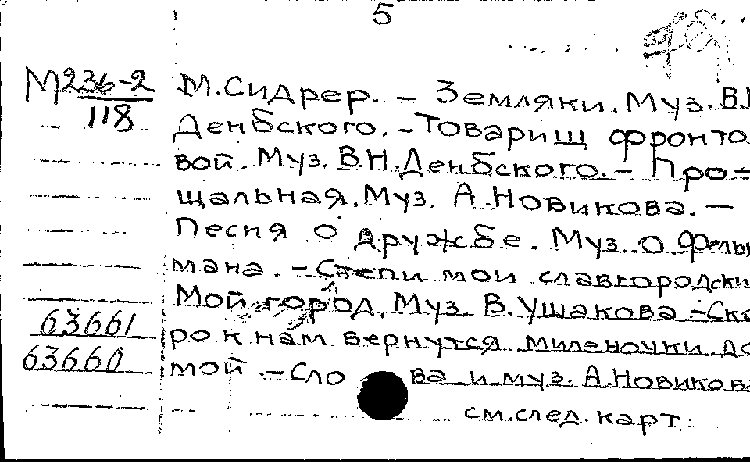 5
М236-2
118
М.Сидрер. – Земляки. Муз. В.
Денбского. – Товарищ фронто
вой. Муз. В.Н.Денбского. – Про-
щальная. Муз. А.Новикова. –
Песня о дружбе. Муз. О.Фельц
мана. – Степи мои славгородски
Мой город. Муз. В.Ушакова – Ско
63661
ро к нам вернутся миленочки до
63660
мой. – Слова и муз. А.Новикова
см.след.карт.